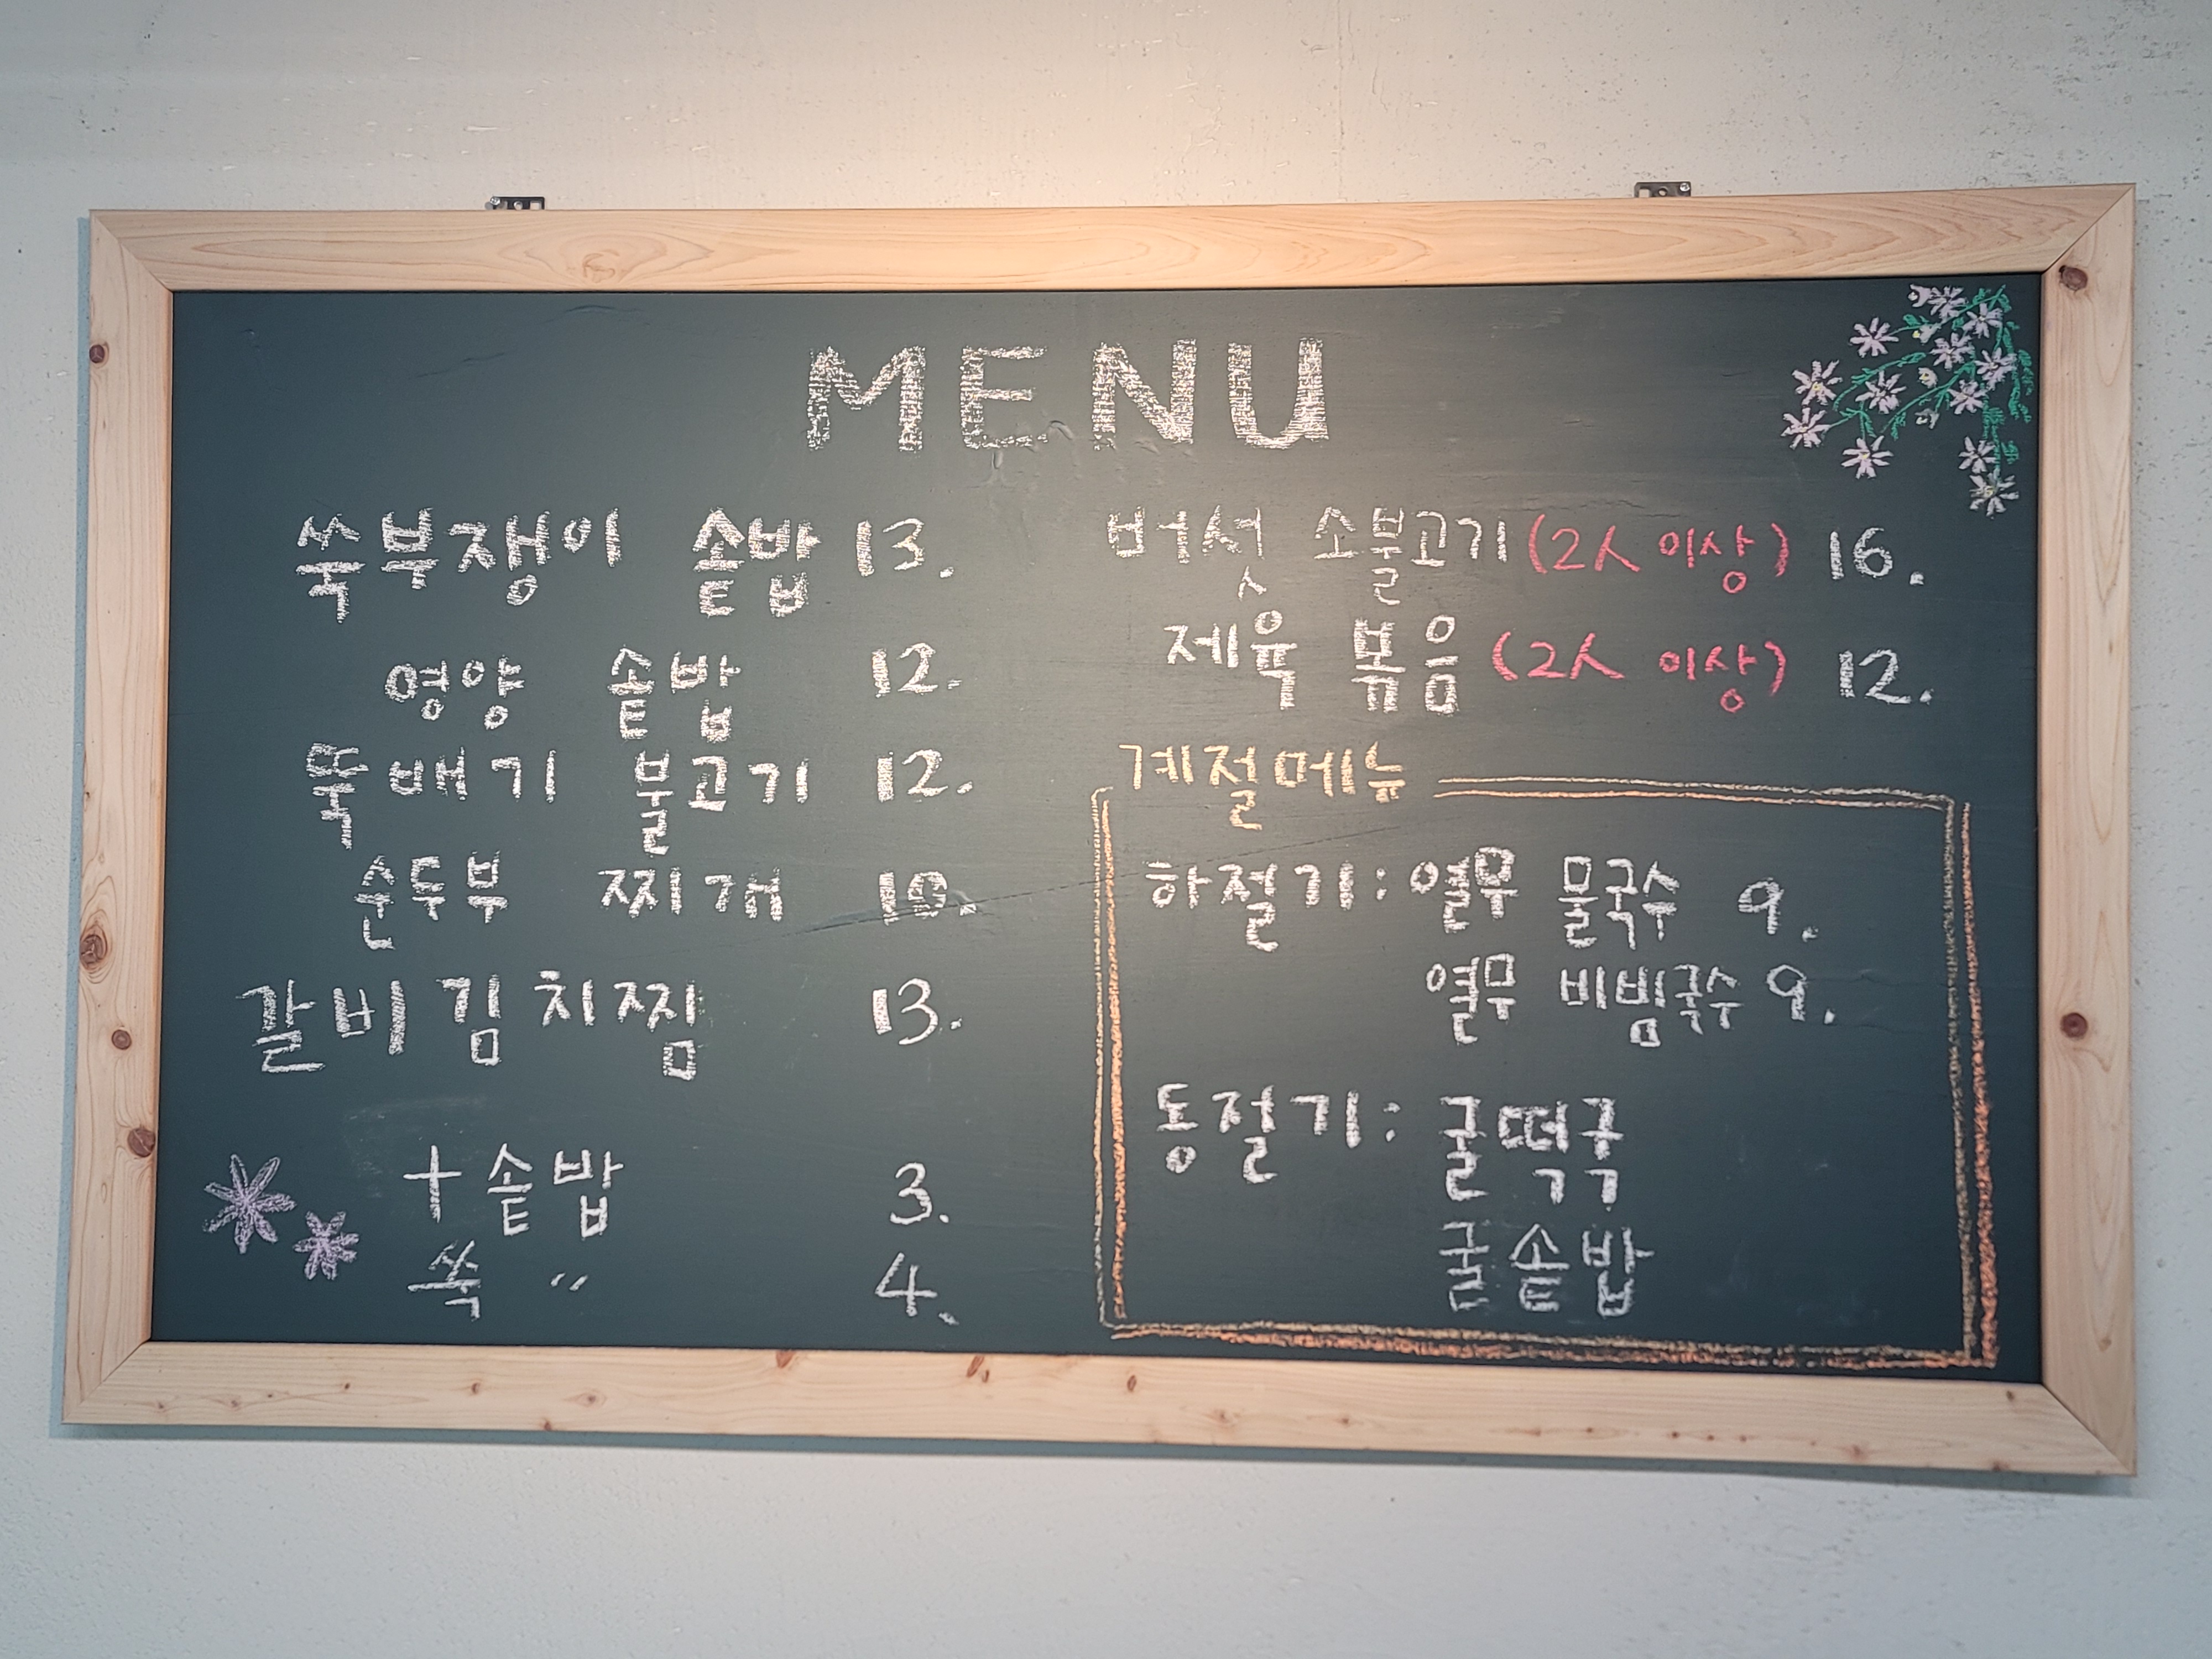 MENU
쑥부쟁이 솥밥 13.
영양 솥밥 12.
뚝배기 불고기 12.
순두부 찌개 10.
갈비김치찜 13.
+솥밥 3.
쑥 〃 4.
버섯 소불고기(2人 이상) 16.
제육 볶음(2人 이상) 12.
계절메뉴
하절기: 열무 물국수 9.
열무 비빔국수 9.
동절기: 굴떡국
굴솥밥